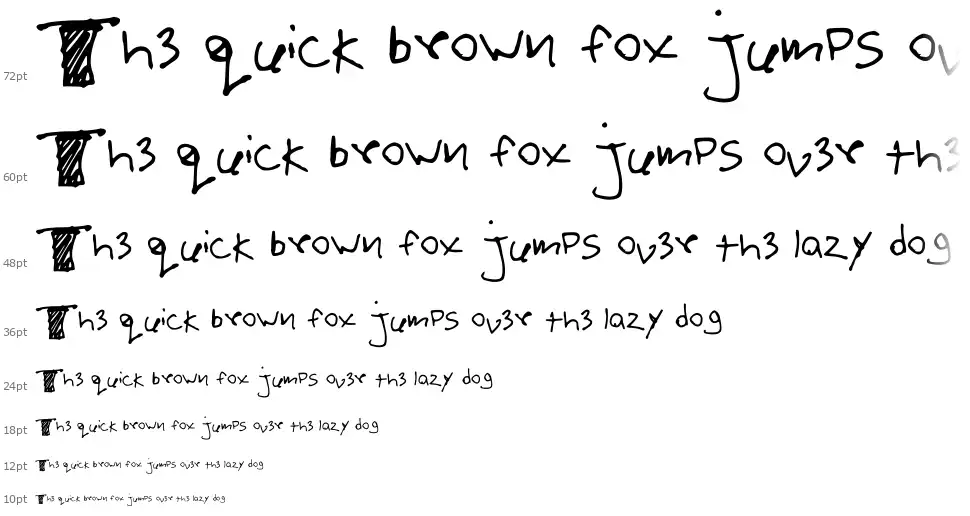 72pt Th3 quick brown fox jumps ov
60pt Th3 quick brown fox jumps ov3r th3
48pt Th3 quick brown fox jumps ov3r th3 lazy dog
36pt Th3 quick brown fox jumps ov3r th3 lazy dog
24pt Th3 quick brown fox jumps ov3r th3 lazy dog
18pt Th3 quick brown fox jumps ov3r th3 lazy dog
12pt Th3 quick brown fox jumps ov3r th3 lazy dog
10pt Th3 quick brown fox jumps ov3r th3 lazy dog